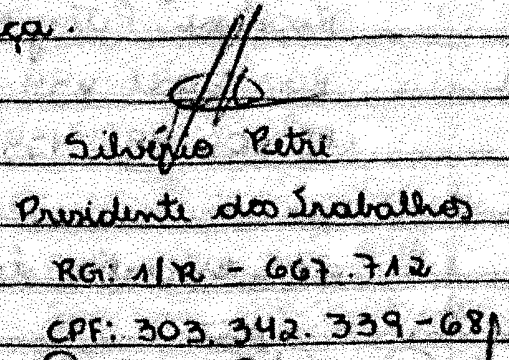 ça.
Silvério Petri
Presidente dos Trabalhos
RG: 1/R - 667.712
CPF: 303.342.339-68